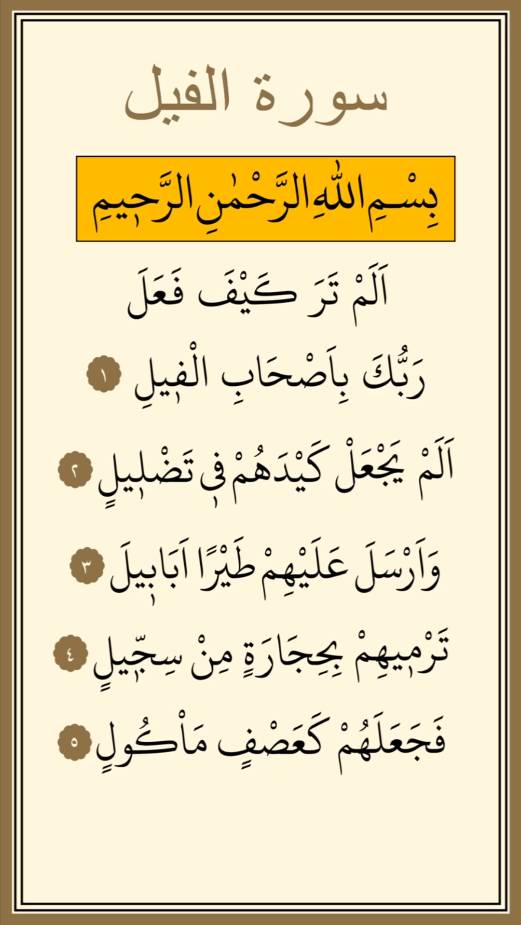 سورة الفيل
بِسْمِ اللّٰهِ الرَّحْمٰنِ الرَّحٖيمِ
اَلَمْ تَرَ كَيْفَ فَعَلَ
رَبُّكَ بِاَصْحَابِ الْفٖيلِ ١
اَلَمْ يَجْعَلْ كَيْدَهُمْ فٖي تَضْلٖيلٍ ٢
وَاَرْسَلَ عَلَيْهِمْ طَيْرًا اَبَابٖيلَ ٣
تَرْمٖيهِمْ بِحِجَارَةٍ مِنْ سِجّٖيلٍ ٤
فَجَعَلَهُمْ كَعَصْفٍ مَاْكُولٍ ٥